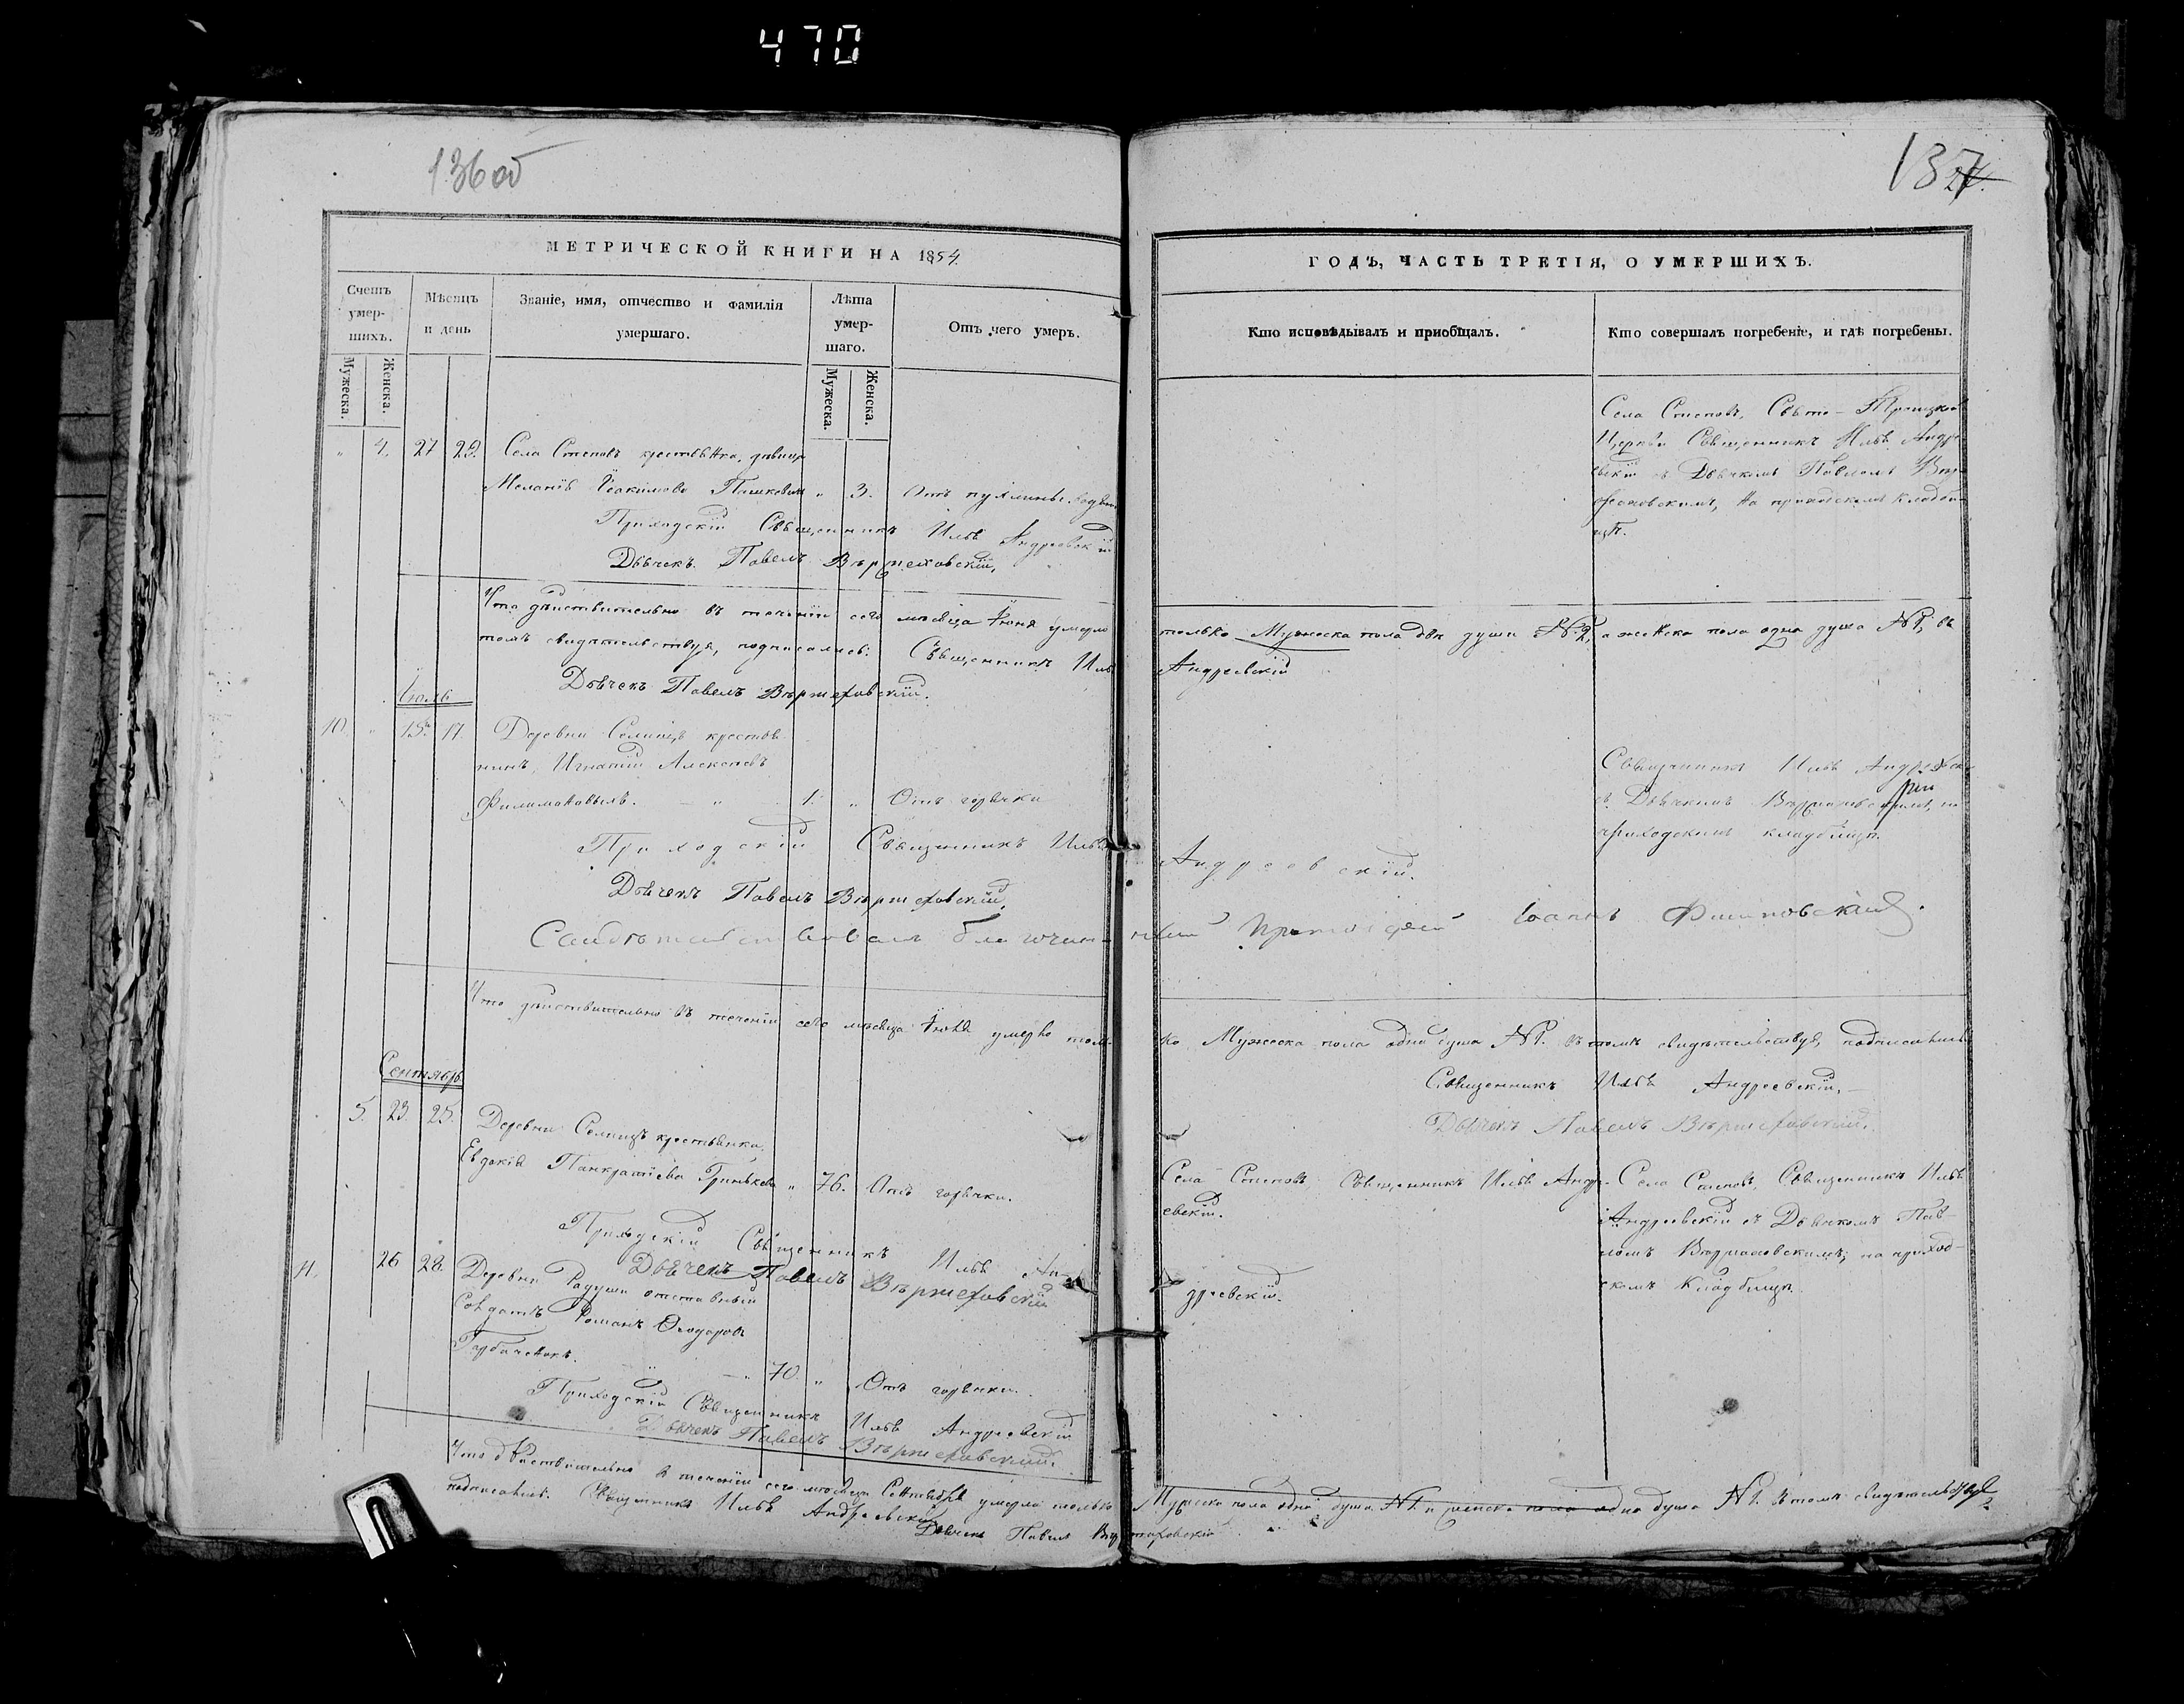 470
136 об
137
МЕТРИЧЕСКОЙ КНИГИ НА 1854.
Счетъ умер-шихъ.
Мужеска.
Женска.
Мѣсяцъ и день
Званіе, имя, отчество и фамилія умершаго.
Лѣта умер-шаго.
Мужеска.
Женска.
Отъ чего умеръ.
4. 27 29. Села Степовъ крестьянка, дѣвица
Меланія Іоакимова Пашкевичъ „ 3. Отъ
Приходскій Священникъ Илья Андреевскій
Дьячекъ Павелъ Вержеховскій,
Что дѣйствительно въ теченіи сего мѣсяца Іюня умерло
томъ свидѣтельствуя, подписались: Священникъ Илья
Дьячекъ Павелъ Вержеховскій.
Іюль
10. „ 15. 17. Деревни Селищъ крестья-
нинъ, Игнатій Алексѣевъ
Филимоновъ. „ 1. „ Отъ горячки
Приходскій Священникъ Илья
Дьячекъ Павелъ Вержеховскій,
Свидѣтельствовалъ благочин-
Что дѣйствительно въ теченіи сего мѣсяца Іюля умерло толь-
Сентябрь
5. 23. 25. Деревни Селищъ крестьянка,
Евдокія Панкратіева Гринькова „ 76. Отъ горячки.
Приходскій Священникъ Илья Ан-
Дьячекъ Павелъ Вержеховскій
11. 26 28. Деревни отставный
Солдатъ Романъ Ѳеодоровъ
„ 70 „ Отъ горячки.
Приходскій Священникъ Илья Андреевскій
Дьячекъ Павелъ Вержеховскій.
Что дѣйствительно въ теченіи сего мѣсяца Сентября умерло только
подписались: Священникъ Илья Андреевскій
Дьячекъ Павелъ Вер
ГОДЪ, ЧАСТЬ ТРЕТІЯ, О УМЕРШИХЪ.
Кто исповѣдывалъ и приобщалъ.
Кто совершалъ погребеніе, и гдѣ погребены.
Села Степовъ, Свято-Троицкой
Церкви Священникъ Илья Андре-
евскій съ Дьячкомъ Павломъ Вер-
жеховскимъ, на приходскомъ кладби-
щѣ.
только Мужеска пола двѣ души №2, а женска пола одна душа №1, въ
Андреевскій
Священникъ Илья Андреевскій
съ Дьячкомъ Вержеховскимъ, на
приходскомъ кладбищѣ.
Андреевскій.
ный Протоіерей Іоаннъ
ко Мужеска пола одна душа №1. въ томъ свидѣтельствуя, подписались
Священникъ Илья Андреевскій,
Дьячекъ Павелъ Вержеховскій.
Села Степовъ, Священникъ Илья Андре-
евскій.
Села Степовъ, Священникъ Илья
Андреевскій съ Дьячкомъ Пав-
ломъ Вержеховскимъ, на приход-
скомъ кладбищѣ.
дреевскій.
Мужеска пола одна душа №1. и женска пола одна душа №1. въ томъ свидѣтельствуя
жеховскій